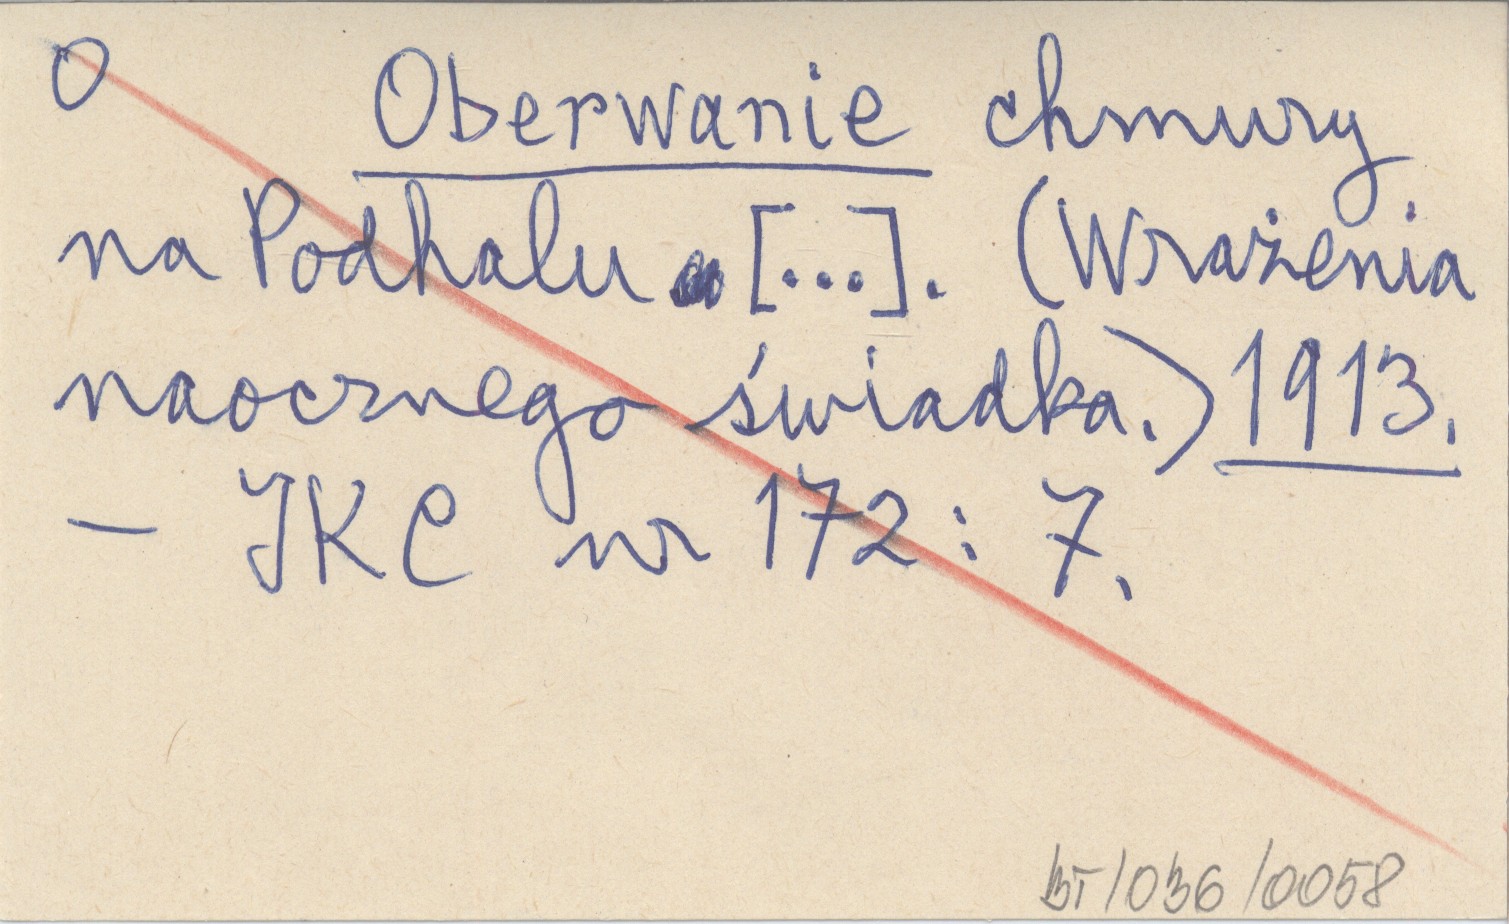 O Oberwanie chmury
na Podhalu [...]. (Wrażenia
naocznego świadka.) 1913.
– IKC nr 172 : 7.
BT/036/0058